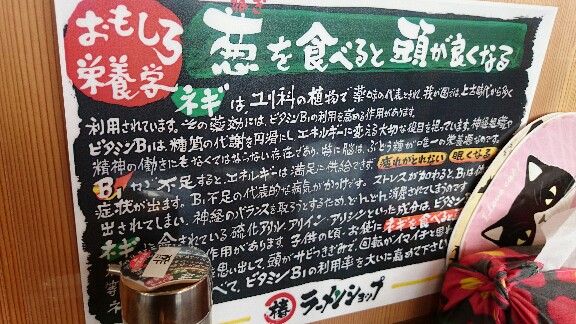 おもしろ
栄養学
ねぎ
葱を食べると頭が良くなる
ネギは、ユリ科の植物で薬味の代表とされ、我が国では、上古時代から多く
利用されています。その薬効には、ビタミンB₁の利用を高める作用があります。
ビタミンB₁は、糖質の代謝を円滑にしエネルギーに変える大切な役目を担っています。神経組織や
精神の働きになくてはならない存在であり、特に脳は、ぶどう糖が唯一の栄養源なのです。
B₁が不足すると、エネルギーは満足に供給できず 疲れがとれない 眠くなる
症状が出ます。B₁不足の代表的な病気がかっけです。ストレスが加わると、B₁は
出されてしまい、神経のバランスを取ろうとするため、どんどん消費されてしまうのです
ネギに含まれている硫化アリル、アリイン、アリシンといった成分は、ビタミン
作用があります。子供の頃、お彼に ネギを食べると
思い出して、頭がサビつきぎみで、回転がイマイチと思わ
べて、ビタミンB₁の利用率を大いに高めて下さい
椿 ラーメンショップ